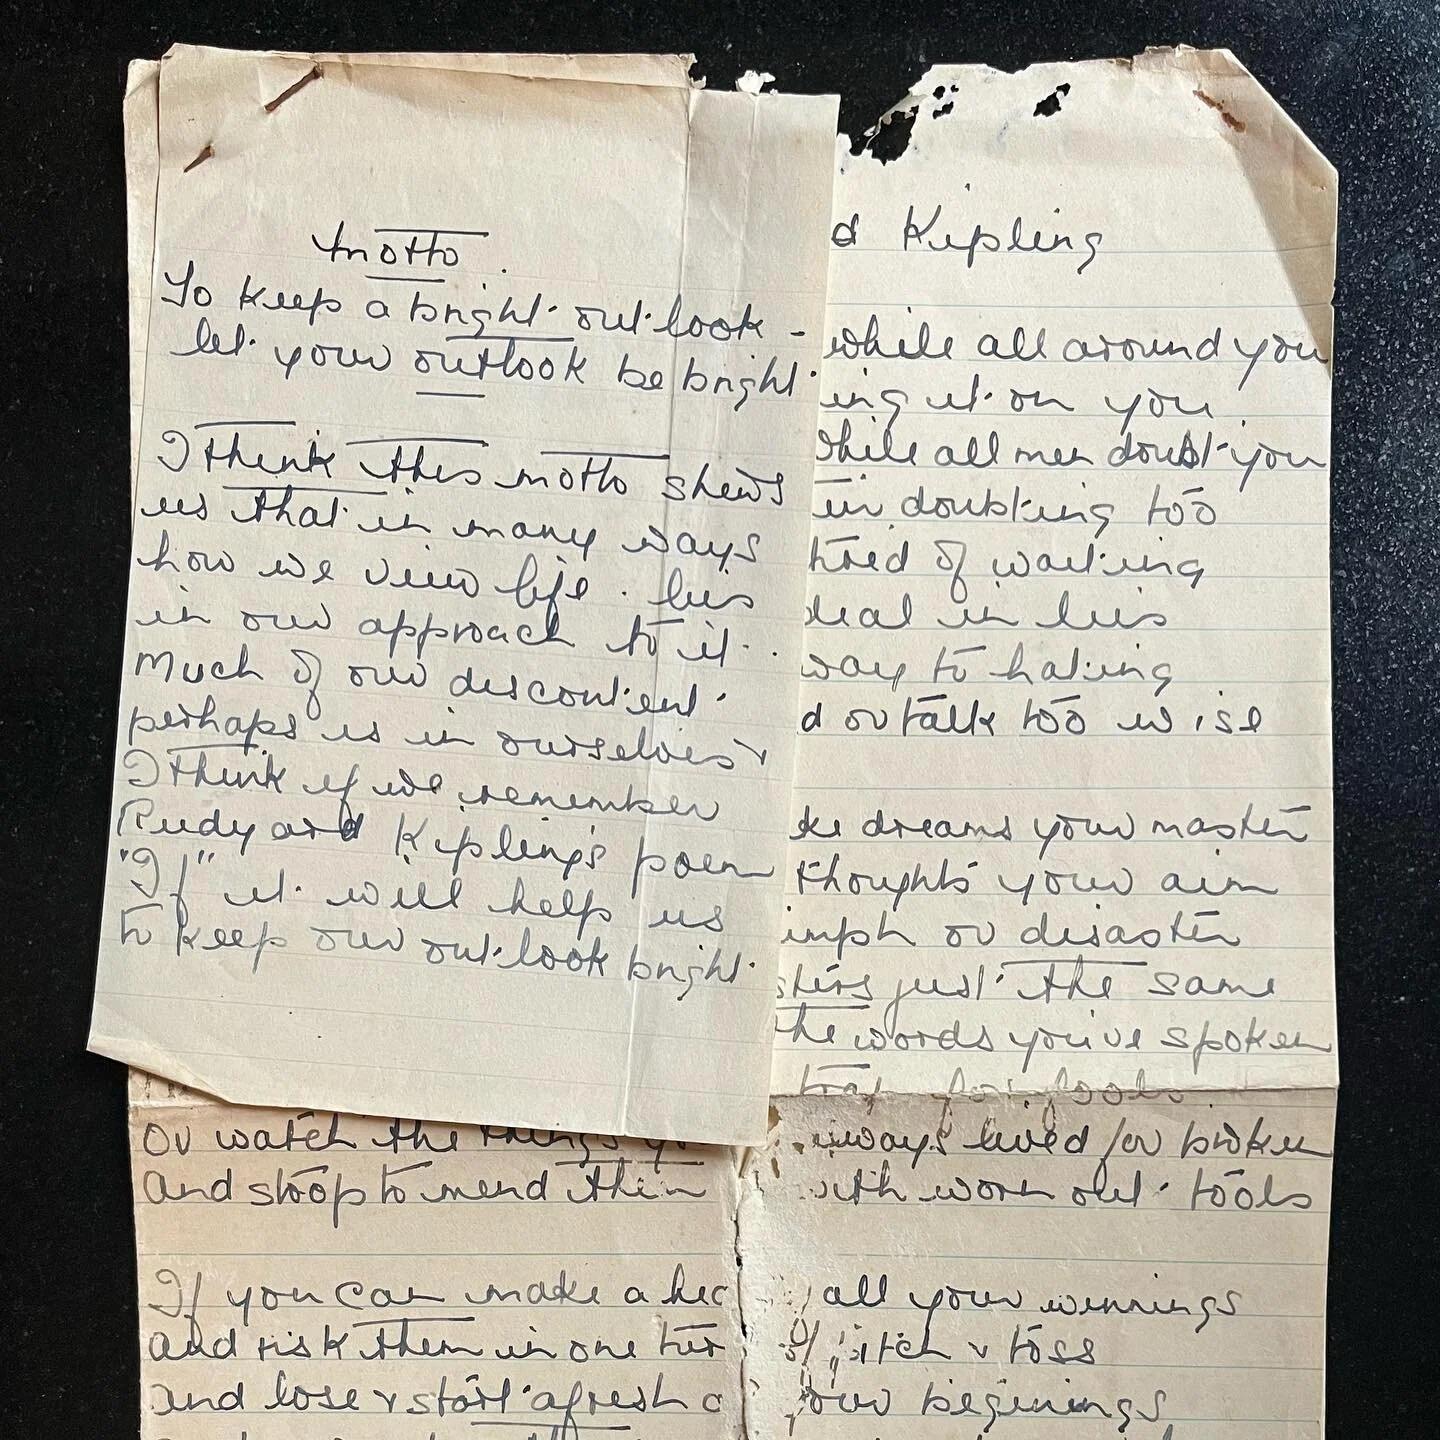 Motto.
To keep a bright outlook -
let your outlook be bright.
I think this motto shews
us that in many ways
how we view life. lies
in our approach to it.
Much of our discontent
perhaps is in ourselves &
I think if we remember
Rudyard Kipling's poem
"If" it will help us
to keep our outlook bright.
d Kipling
while all around you
ing it on you
while all men doubt you
in doubting too
tired of waiting
deal in lies
way to hating
d or talk too wise
ke dreams your master
thoughts your aim
umph or disaster
sters just the same
the words you've spoken
trap for fools
Or watch the things yo ways lived for broken
And stoop to mend them with worn out tools
If you can make a hea all your winnings
And risk them in one tur of pitch & toss
And lose & start afresh a your beginings